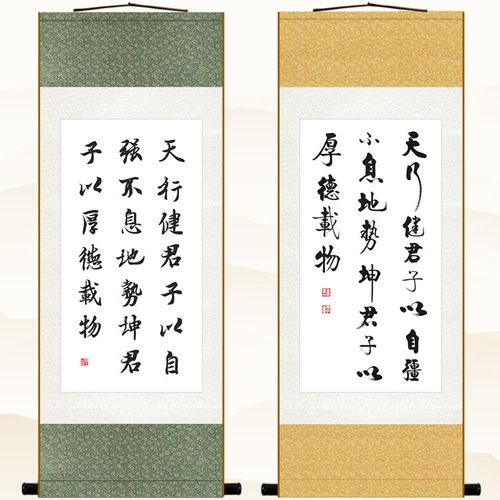 天行健君子以自
强不息地勢坤君
子以厚德載物
天行健君子以自彊
不息地勢坤君子以
厚德載物